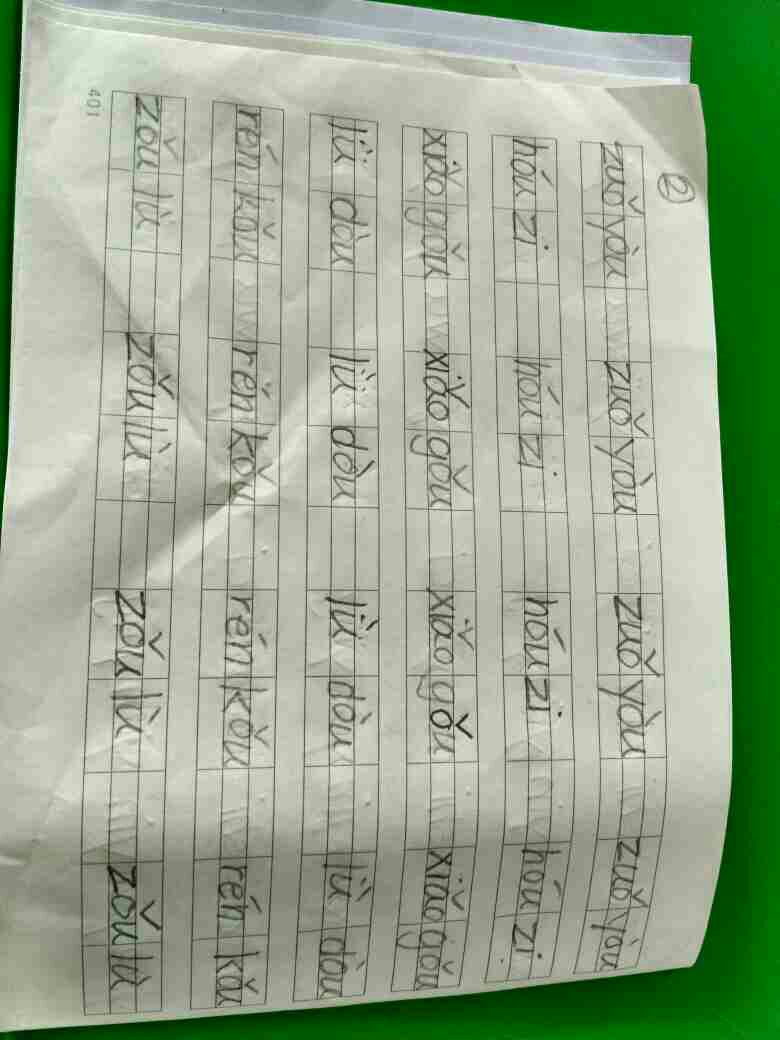 ②
zuǒ yòu zuǒ yòu zuǒ yòu zuǒ yòu
hóu zi hóu zi hóu zi hóu zi
xiǎo gǒu xiǎo gǒu xiǎo gǒu xiǎo gǒu
lǜ dòu lǜ dòu lǜ dòu lǜ dòu
rén kǒu rén kǒu rén kǒu rén kǒu
zǒu lù zǒu lù zǒu lù zǒu lù
401